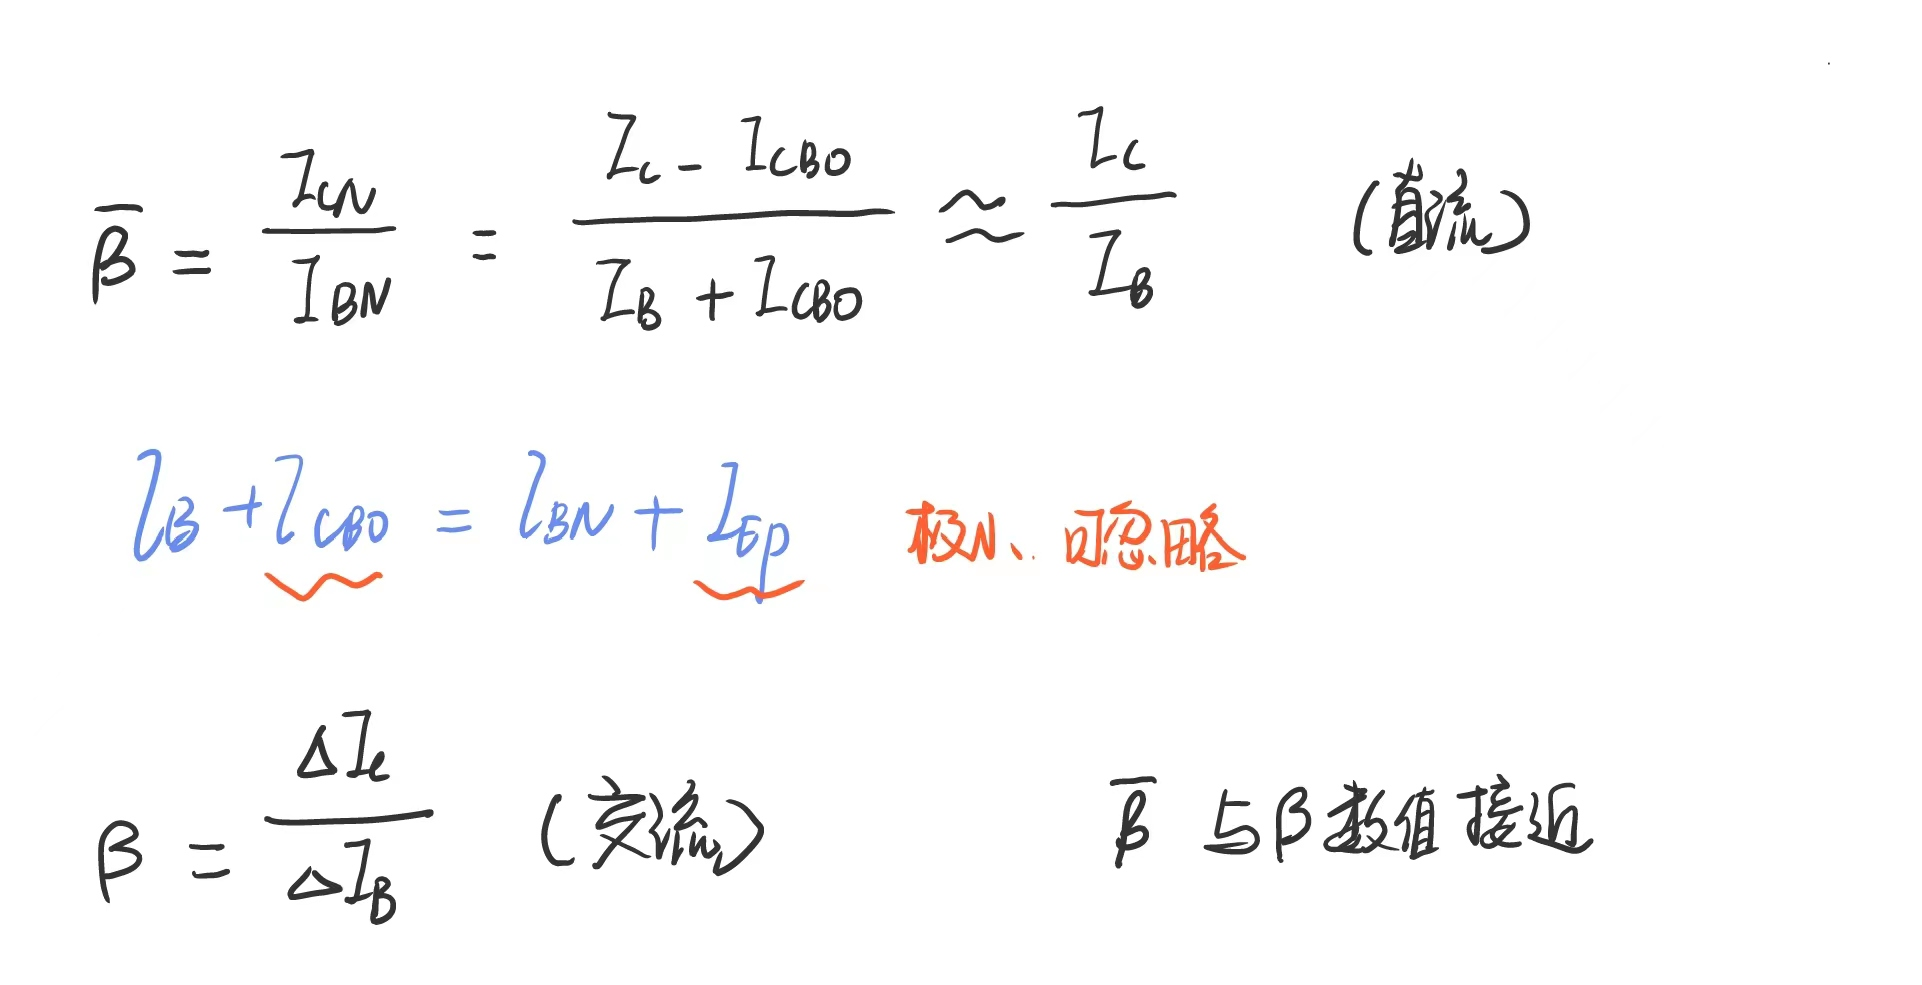 β̄ = I_CN / I_BN = (I_C - I_CBO) / (I_B + I_CBO) ≈ I_C / I_B (直流)
I_B + I_CBO = I_BN + I_EP 极小、可忽略
β = ΔI_C / ΔI_B (交流) β̄ 与β数值接近